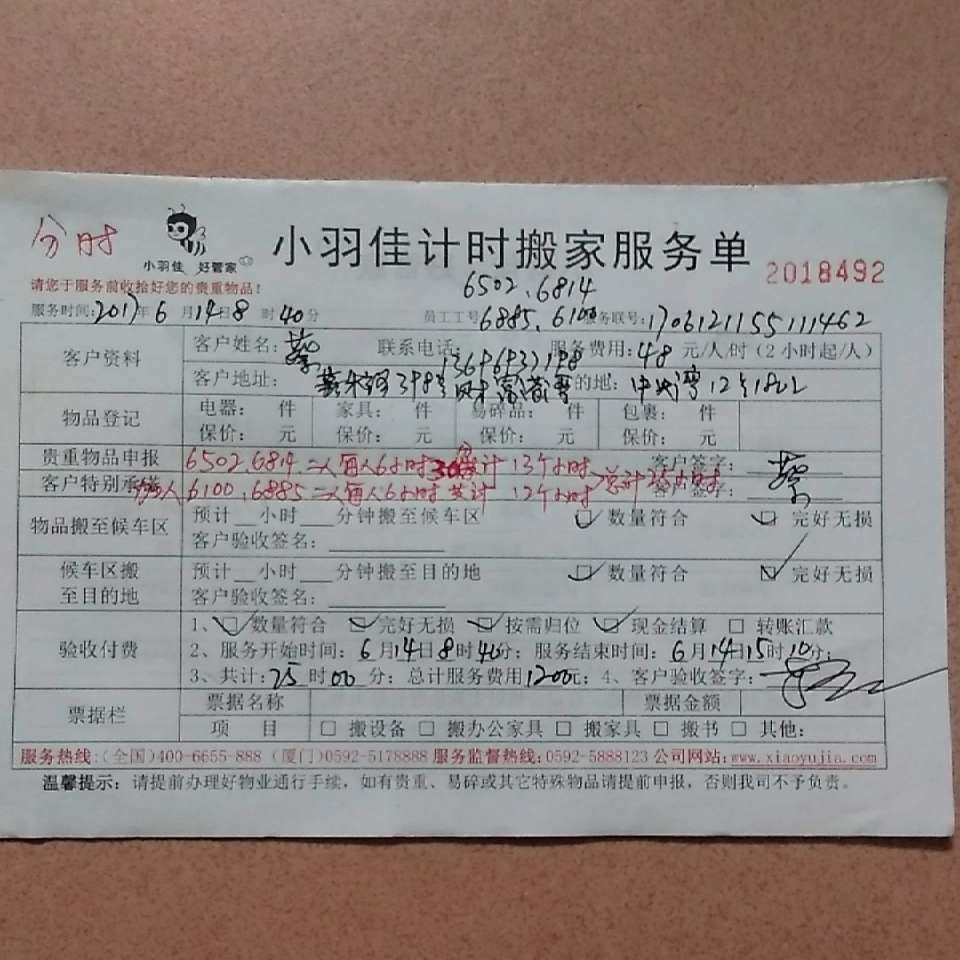 分时
小羽佳 好管家
小羽佳计时搬家服务单
2018492
请您于服务前收拾好您的贵重物品!
6502.6814
服务时间:2017年6月14日8时40分 员工工号:6885.6100 服务联号:1706121155111462
客户资料 客户姓名:蔡 联系电话: 服务费用:48元/人/时(2小时起/人)
客户地址: 398号 目的地: 中央湾12号1802
物品登记 电器: 件 家具: 件 易碎品: 件 包裹: 件
保价: 元 保价: 元 保价: 元 保价: 元
贵重物品申报 6502.6814.二人每人6小时30分共计13个小时 客户签字: 蔡
客户特别承诺 6100.6885二人每人6小时共计12个小时 总计25小时 客户签字:
物品搬至候车区 预计__小时___分钟搬至候车区 ☑数量符合 ☑完好无损
客户验收签名:
候车区搬至目的地 预计__小时___分钟搬至目的地 ☑数量符合 ☑完好无损
客户验收签名:
验收付费 1、☑数量符合 ☑完好无损 ☑按需归位 ☑现金结算 □转账汇款
2、服务开始时间:6月14日8时40分;服务结束时间:6月14日15时10分;
3、共计:25时00分;总计服务费用1200元;4、客户验收签字:
票据栏 票据名称 票据金额
项 目 □搬设备 □搬办公家具 □搬家具 □搬书 □其他:
服务热线:(全国)400-6655-888 (厦门)0592-5178888 服务监督热线:0592-5888123 公司网站:www.xiaoyujia.com
温馨提示:请提前办理好物业通行手续,如有贵重、易碎或其它特殊物品请提前申报,否则我司不予负责。